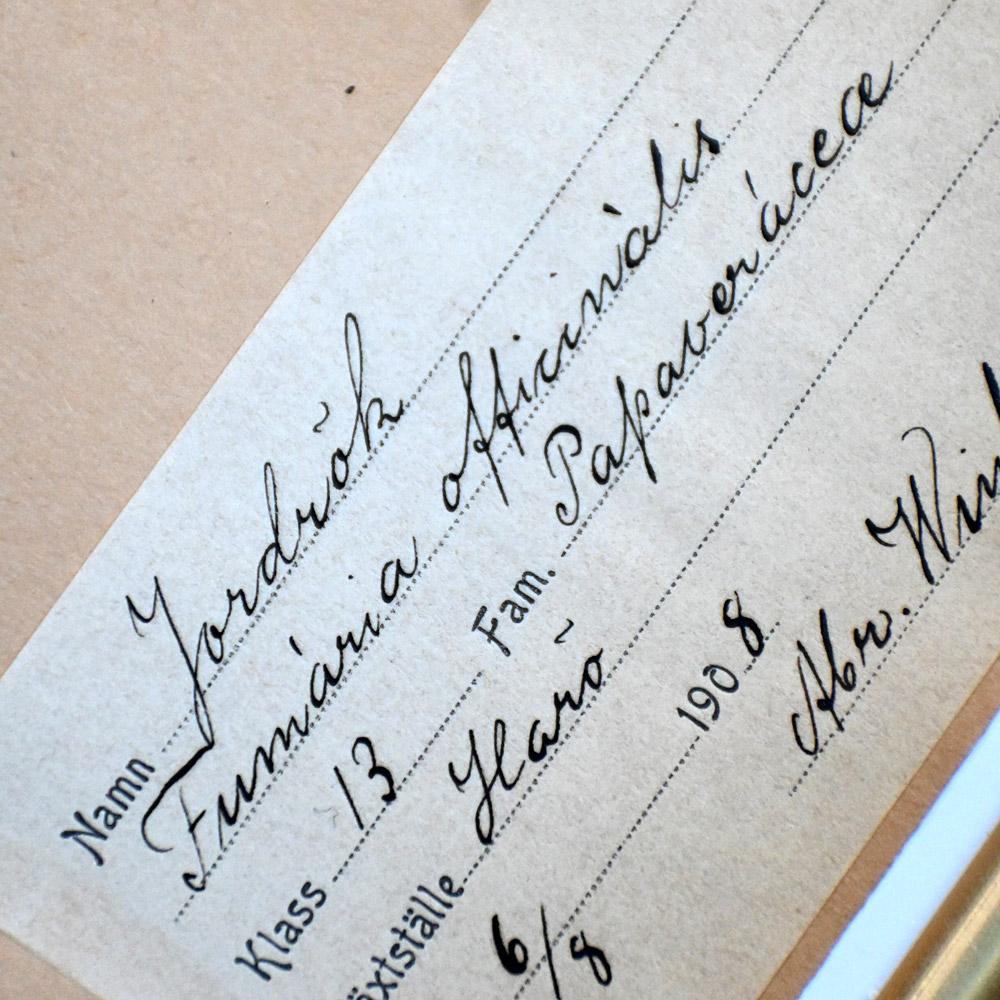 Namn Jordrök
Fumária officinàlis
Klass 13 Fam. Papaveráceæ
äxtställe Harö
6/8 1908
Abr. Win